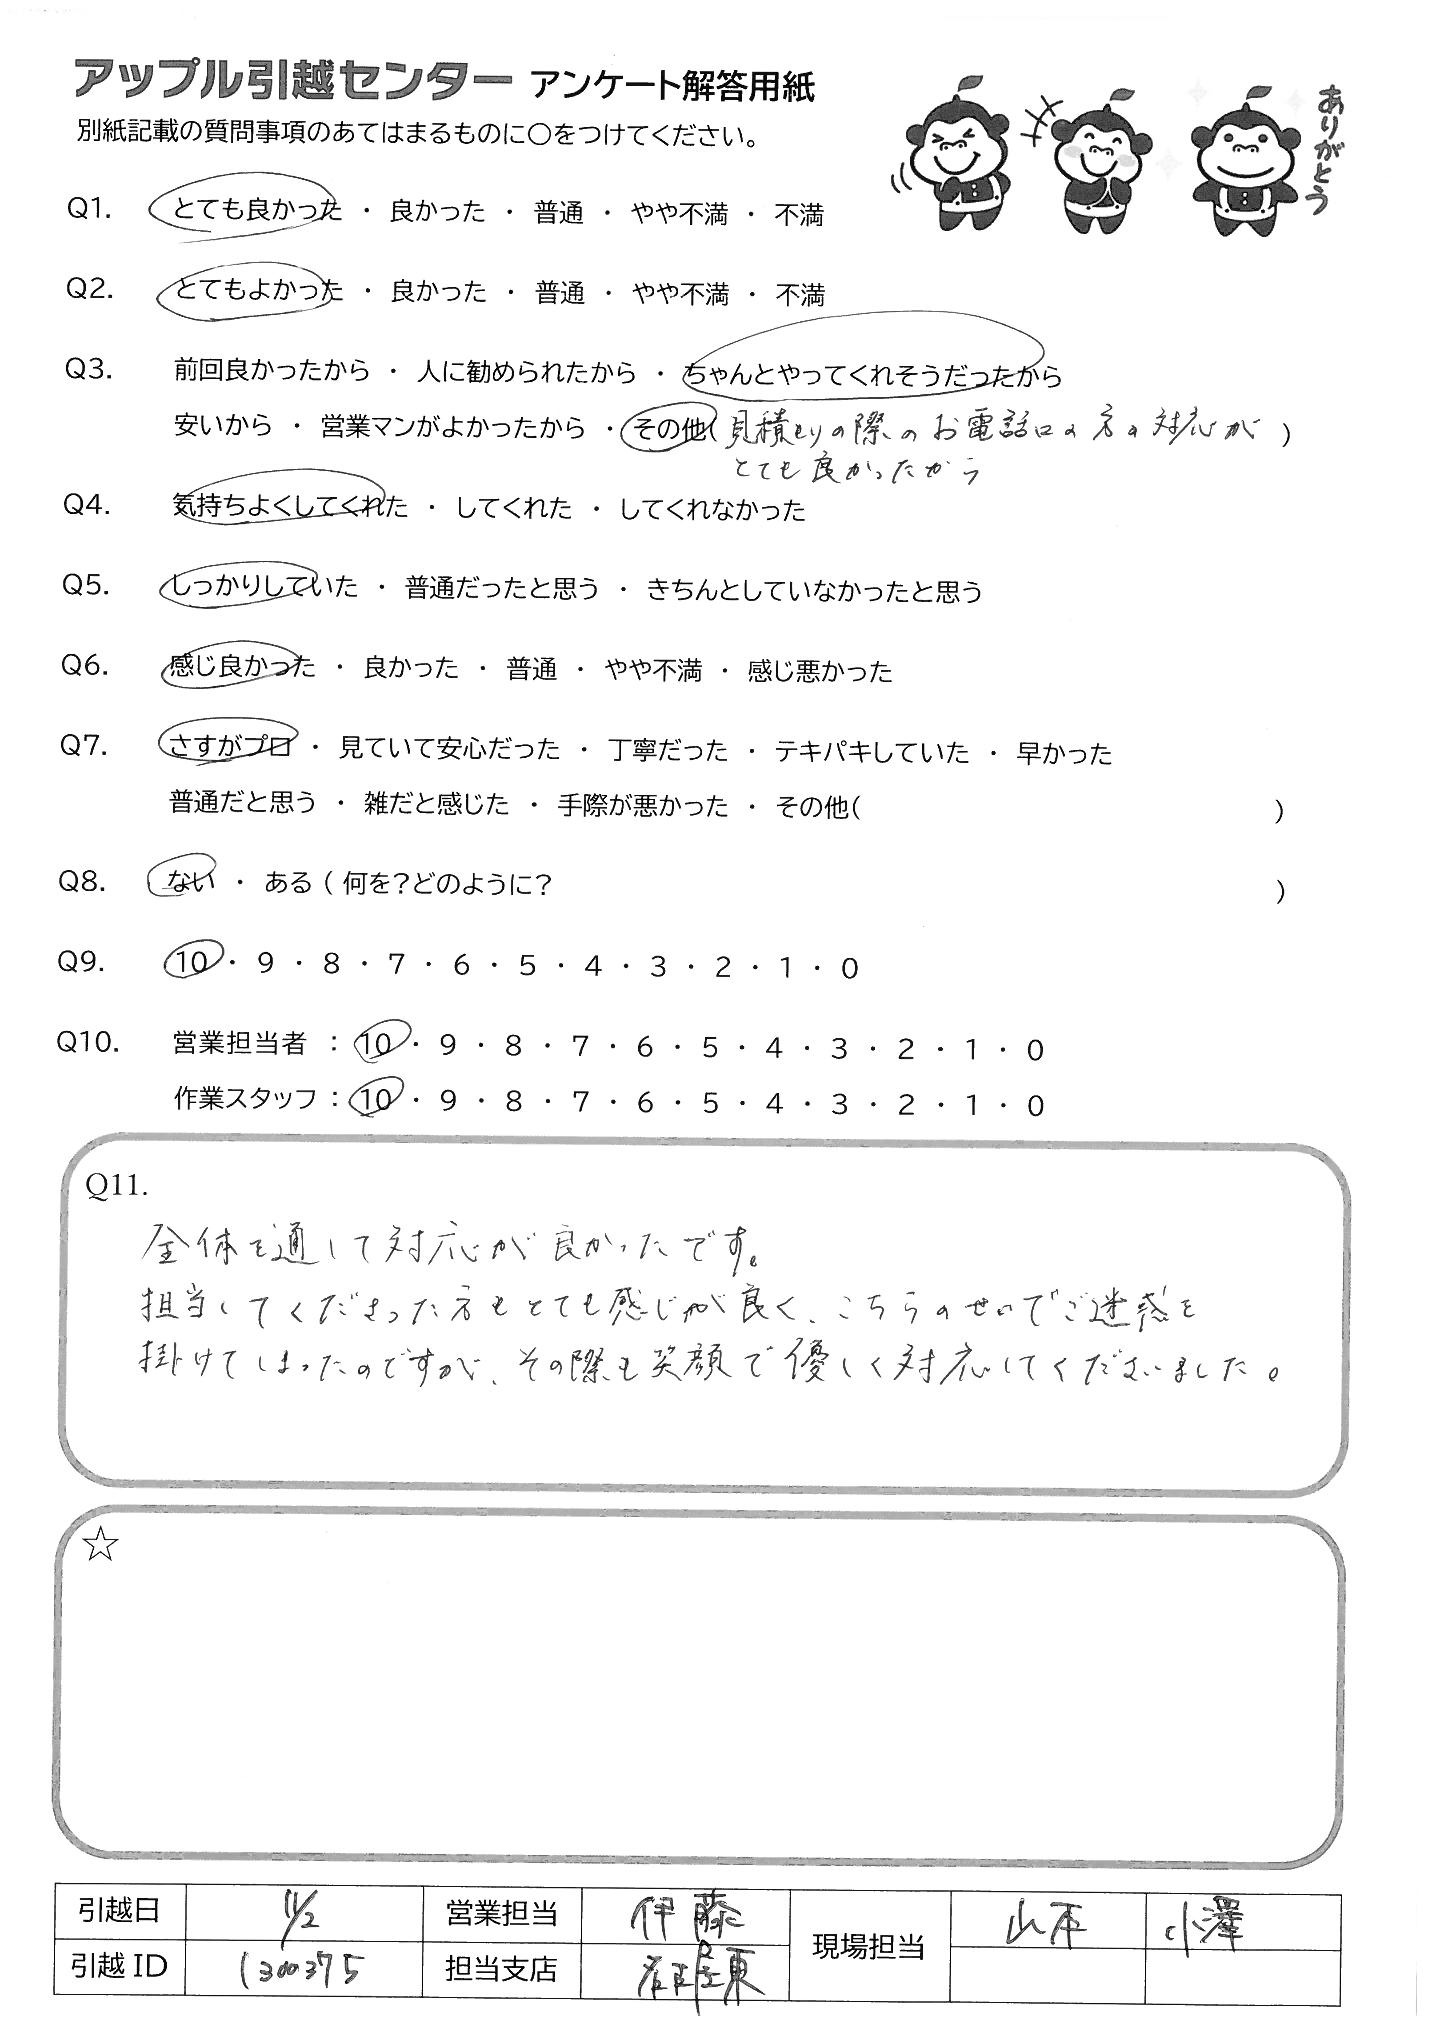 アップル引越センター アンケート解答用紙
別紙記載の質問事項のあてはまるものに〇をつけてください。
ありがとう
Q1. とても良かった ・ 良かった ・ 普通 ・ やや不満 ・ 不満
Q2. とてもよかった ・ 良かった ・ 普通 ・ やや不満 ・ 不満
Q3. 前回良かったから ・ 人に勧められたから ・ ちゃんとやってくれそうだったから
安いから ・ 営業マンがよかったから ・ その他( 見積もりの際のお電話口の方の対応が )
とても良かったから
Q4. 気持ちよくしてくれた ・ してくれた ・ してくれなかった
Q5. しっかりしていた ・ 普通だったと思う ・ きちんとしていなかったと思う
Q6. 感じ良かった ・ 良かった ・ 普通 ・ やや不満 ・ 感じ悪かった
Q7. さすがプロ ・ 見ていて安心だった ・ 丁寧だった ・ テキパキしていた ・ 早かった
普通だと思う ・ 雑だと感じた ・ 手際が悪かった ・ その他( )
Q8. ない ・ ある ( 何を?どのように? )
Q9. 10 ・ 9 ・ 8 ・ 7 ・ 6 ・ 5 ・ 4 ・ 3 ・ 2 ・ 1 ・ 0
Q10. 営業担当者 : 10 ・ 9 ・ 8 ・ 7 ・ 6 ・ 5 ・ 4 ・ 3 ・ 2 ・ 1 ・ 0
作業スタッフ : 10 ・ 9 ・ 8 ・ 7 ・ 6 ・ 5 ・ 4 ・ 3 ・ 2 ・ 1 ・ 0
Q11.
全体を通して対応が良かったです。
担当してくださった方もとても感じが良く、こちらのせいでご迷惑を
掛けてしまったのですが、その際も笑顔で優しく対応してくださいました。
☆
引越日 11/2 営業担当 伊藤 現場担当 山本 小澤
引越ID 1300375 担当支店 名古屋東